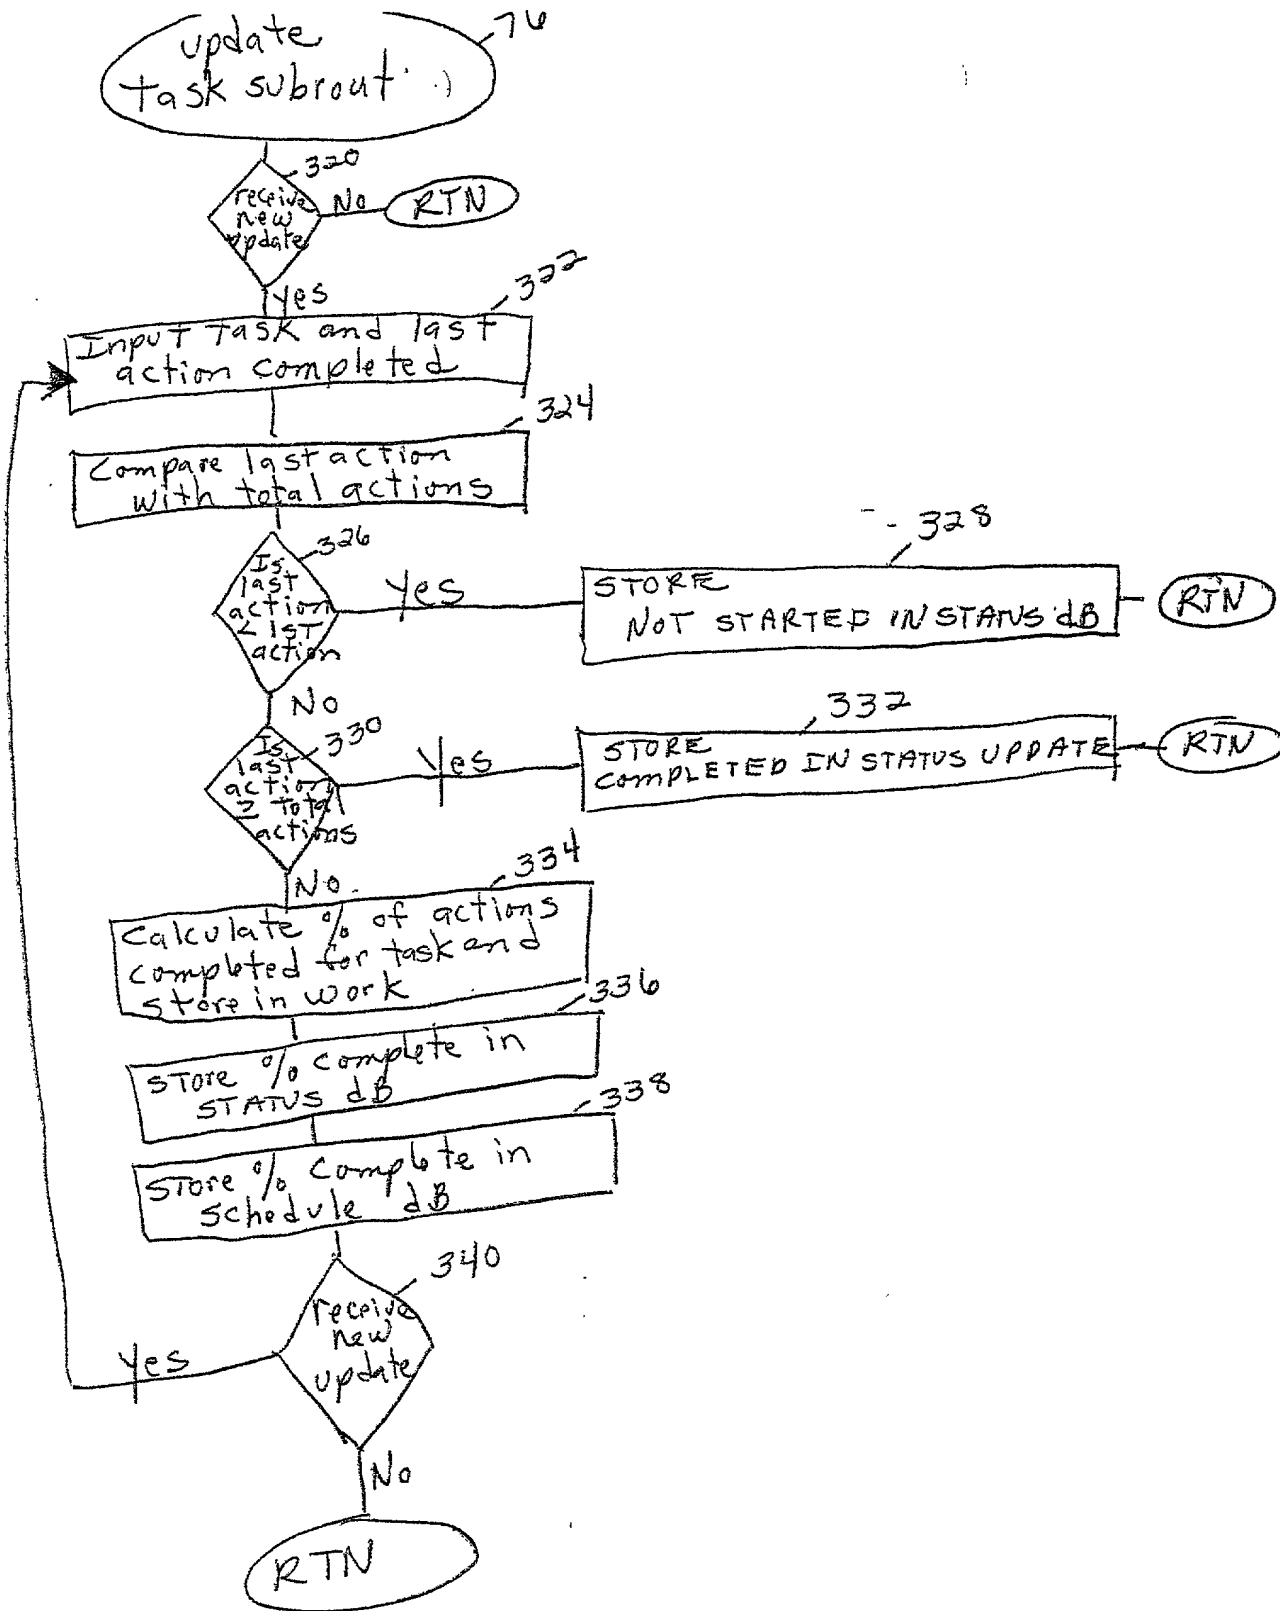 update
task subrout
76
320
receive
new
update
No
RTN
yes
322
Input task and last
action completed
324
Compare last action
with total actions
326
Is
last
action
< 1st
action
yes
328
STORE
NOT STARTED IN STATUS dB
RTN
No
330
Is
last
action
≥ total
actions
Yes
332
STORE
COMPLETED IN STATUS UPDATE
RTN
No.
334
Calculate % of actions
completed for task and
store in work
336
Store % complete in
STATUS dB
338
Store % complete in
schedule dB
340
receive
new
update
yes
No
RTN